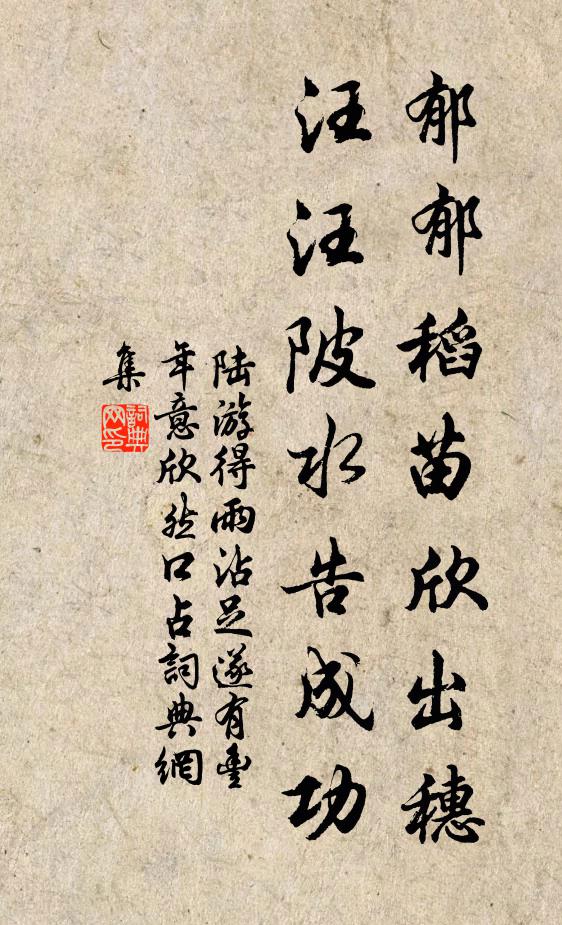 郁郁稻苗欣出穗
汪汪陂水告成功
陆游得雨沾足遂有豐
年意欣然口占詞典網
集
詞典
网印